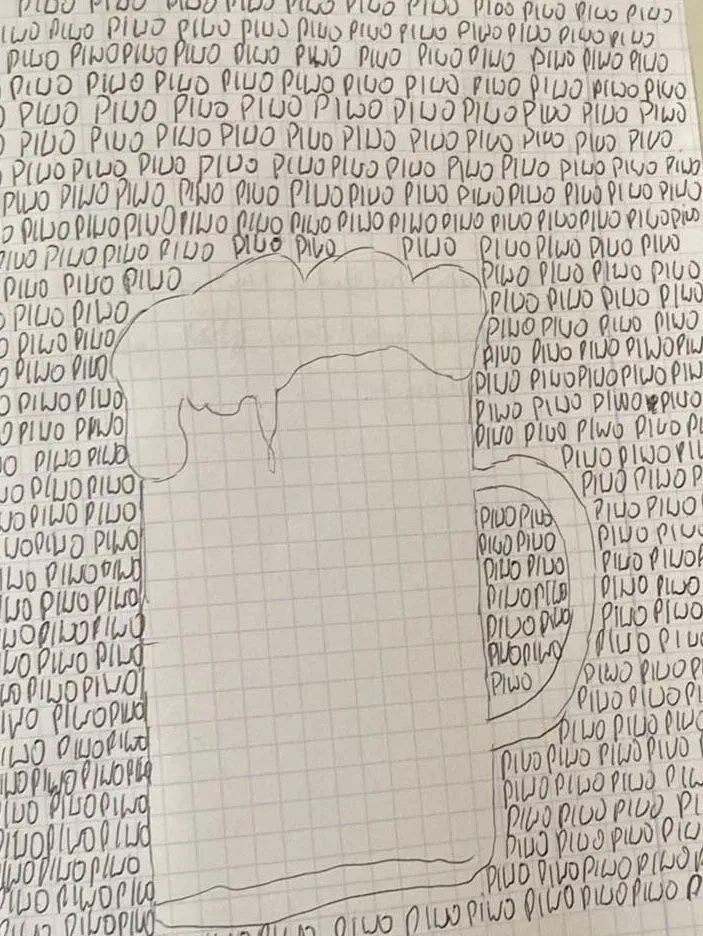 piwo piwo piwo piwo piwo piwo piwo piwo piwo piwo piwo
piwo piwo piwo piwo piwo piwo piwo piwo piwo piwo piwo
piwo piwo piwo piwo piwo piwo piwo piwo piwo piwo piwo
piwo piwo piwo piwo piwo piwo piwo piwo piwo piwo
piwo piwo piwo piwo piwo piwo piwo piwo piwo piwo
piwo piwo piwo piwo piwo piwo piwo piwo piwo piwo
piwo piwo piwo piwo piwo piwo piwo piwo piwo piwo piwo piwo
piwo piwo piwo piwo piwo piwo piwo piwo piwo piwo piwo piwo piwo
piwo piwo piwo piwo piwo piwo piwo piwo piwo piwo piwo piwo piwo piwo
piwo piwo piwo piwo piwo piwo piwo piwo piwo piwo piwo
piwo piwo piwo piwo piwo piwo piwo
piwo piwo piwo piwo piwo piwo
piwo piwo piwo piwo piwo piwo
piwo piwo piwo piwo piwo piwo
piwo piwo piwo piwo piwo piwo
piwo piwo piwo piwo piwo piwo
piwo piwo piwo piwo piwo piwo
piwo piwo piwo piwo
piwo piwo piwo piwo
piwo piwo piwo piwo piwo piwo
piwo piwo piwo piwo piwo piwo
piwo piwo piwo piwo piwo piwo
piwo piwo piwo piwo piwo piwo
piwo piwo piwo piwo piwo piwo
piwo piwo piwo piwo piwo piwo
piwo piwo piwo piwo piwo
piwo piwo piwo piwo
piwo piwo piwo piwo
piwo piwo piwo piwo piwo piwo
piwo piwo piwo piwo piwo
piwo piwo piwo piwo piwo
piwo piwo piwo piwo piwo
piwo piwo piwo piwo piwo
piwo piwo piwo piwo piwo piwo
piwo piwo piwo piwo piwo piwo piwo piwo